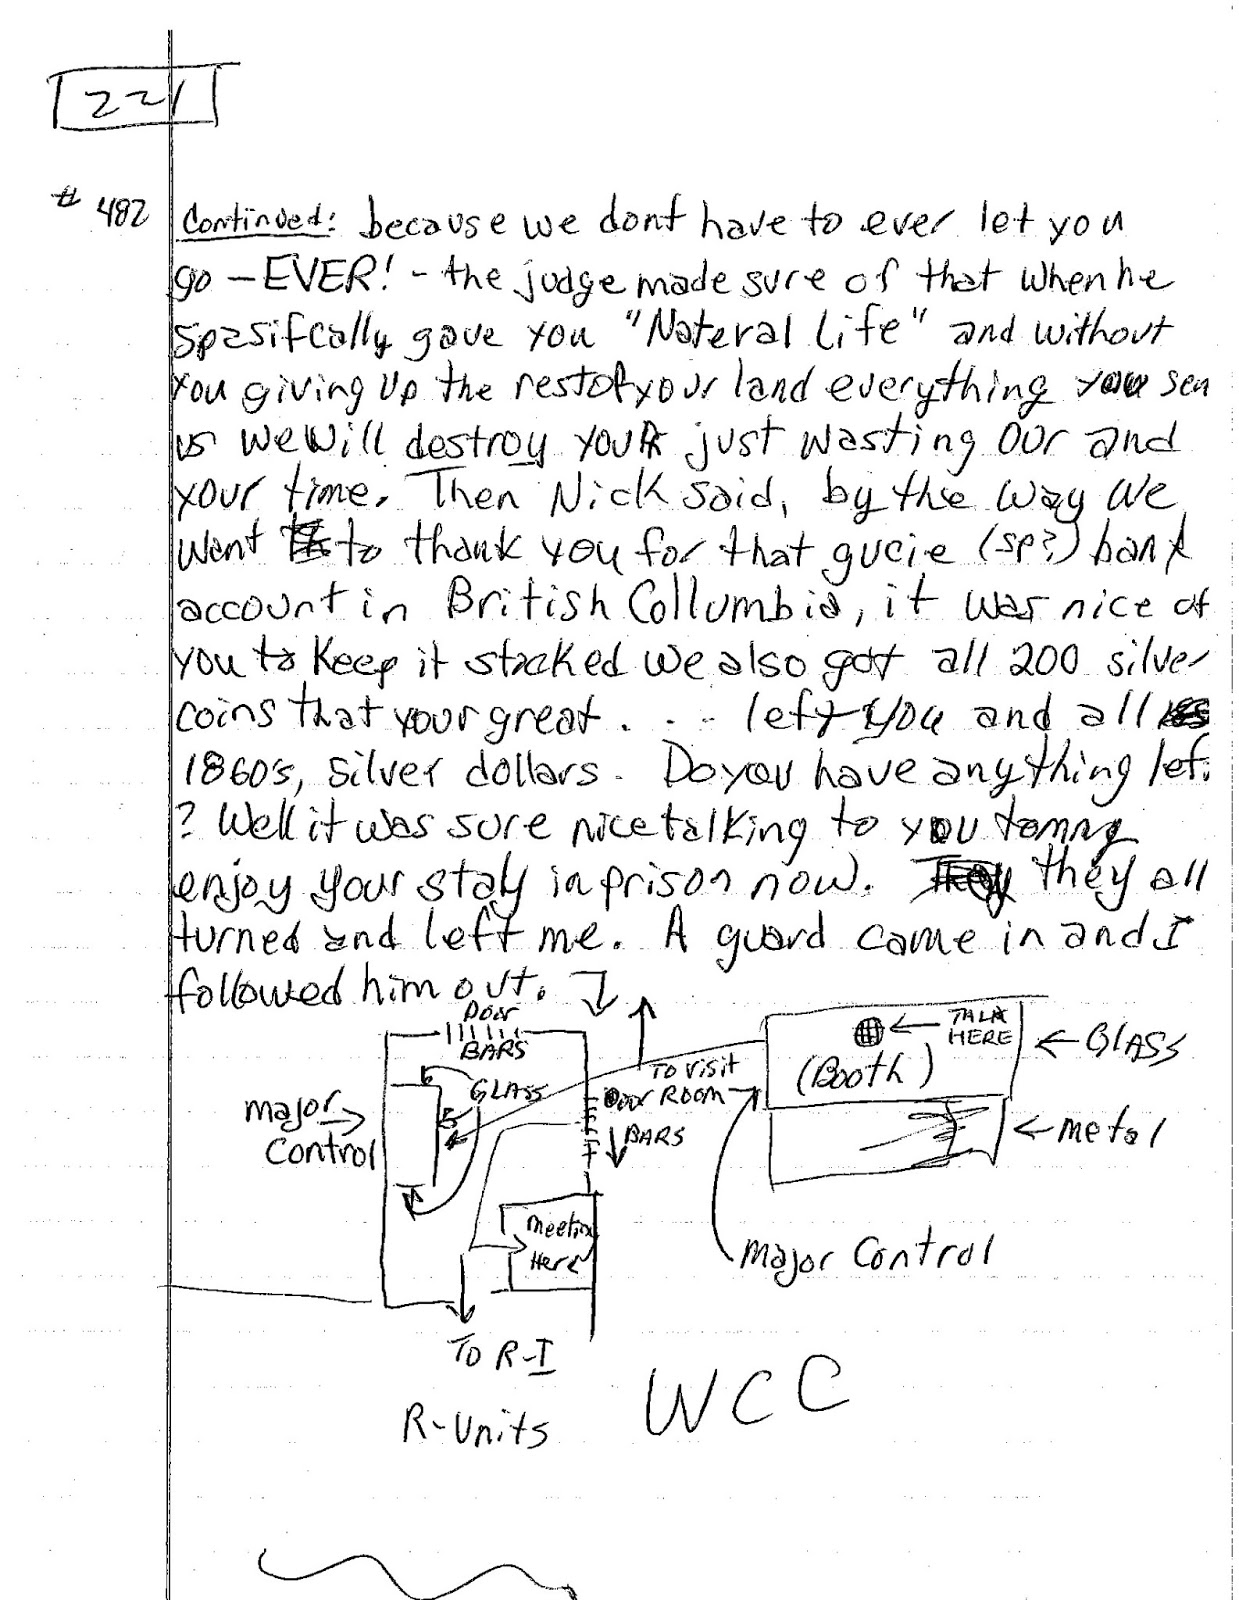 221
# 482 Continued: because we dont have to ever let you
go - EVER! - the judge made sure of that when he
spasifcally gave you "Nateral Life" and without
you giving up the rest of your land everything you sen
us we will destroy your just wasting our and
your time. Then Nick said, by the way we
want to thank you for that gucie (sp?) bank
account in British Collumbia, it was nice of
you to keep it stacked we also got all 200 silver
coins that your great . . . . left you and all
1860's, silver dollars. Do you have anything lef.
? Well it was sure nice talking to you tommy
enjoy your stay in prison now. they all
turned and left me. A guard came in and I
followed him out.
Door
BARS
GLASS
major
Control
TO VISIT
Door ROOM
BARS
meeting
Here
TO R-I
R-Units
TALK
HERE
(Booth)
GLASS
metal
major Control
WCC